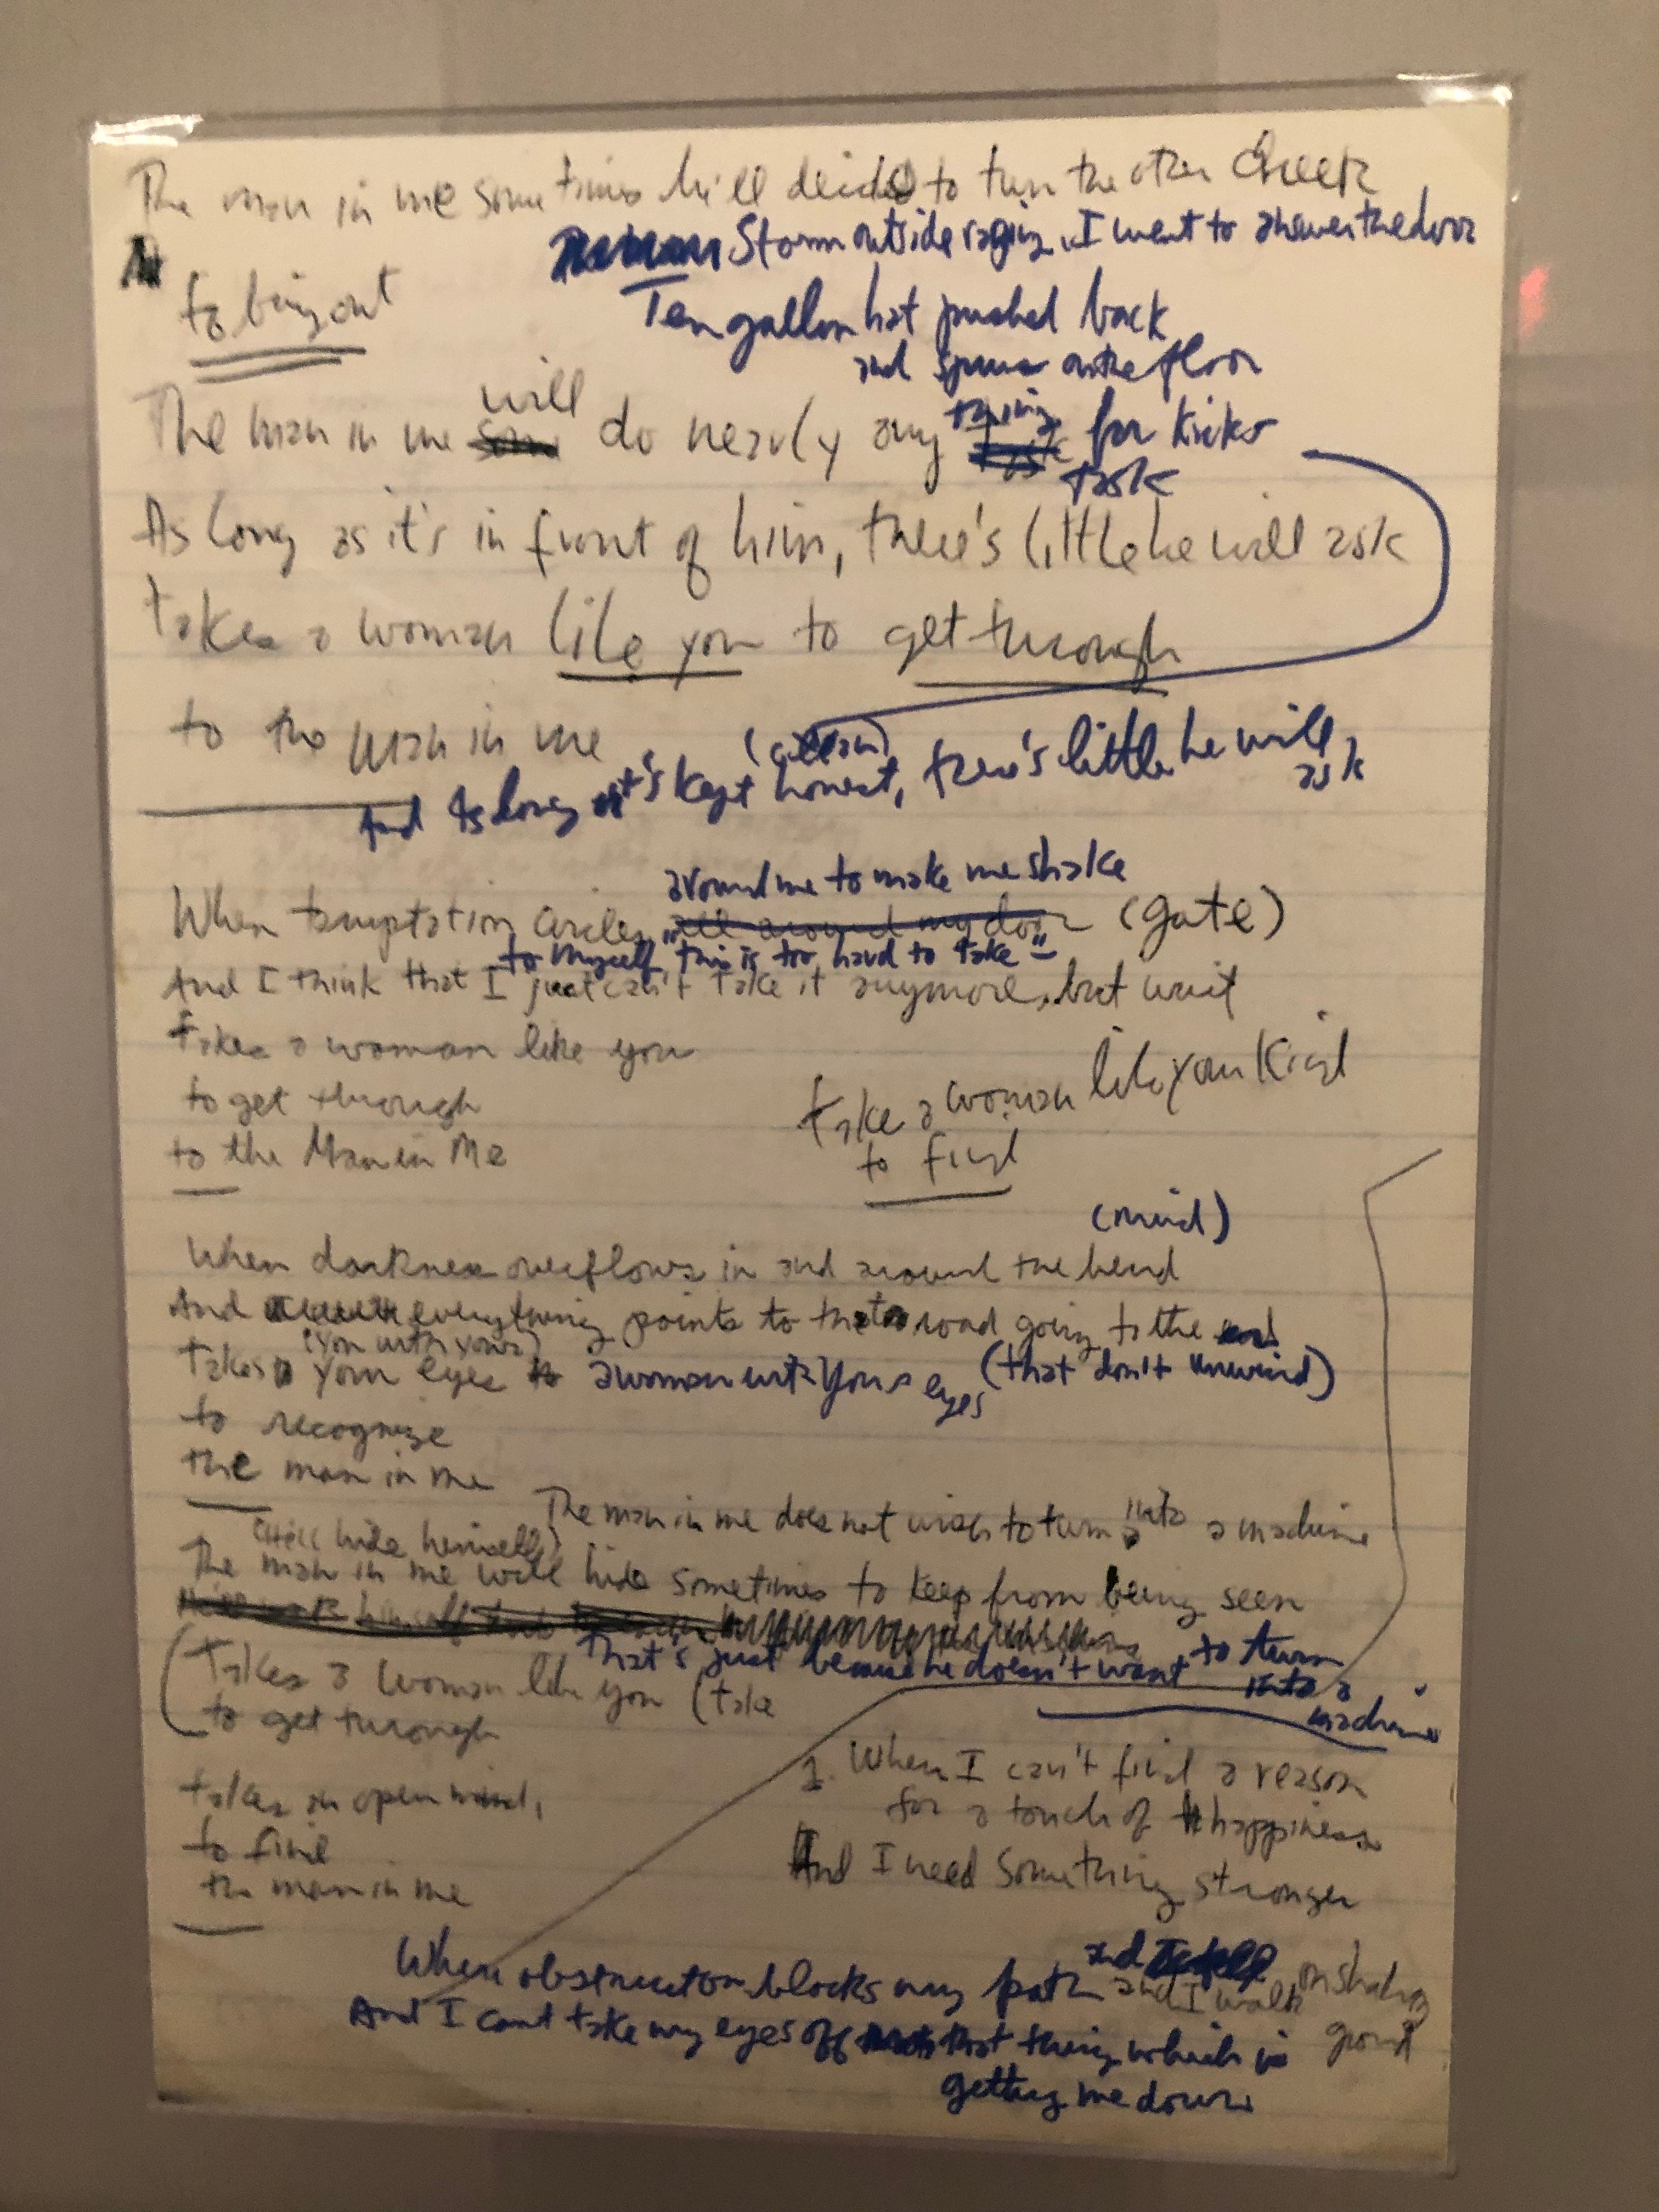 The man in me sometimes he'll decide to turn the other cheek
Storm outside raging, I went to answer the door
to bring out
Ten gallon hat pushed back
and spurs on the floor
will
The man in me do nearly any thing for kicks
task task
As long as it's in front of him, there's little he will ask
takes a woman like you to get through
to the man in me
And As long it's kept honest, there's little he will
ask
around me to make me shake
When temptation circles all around my door (gate)
to myself, "this is too hard to take"
And I think that I just can't take it anymore, but wait
takes a woman like you
to get through
to the Man in Me
take a woman like your kind
to find
(mind)
When darkness overflows in and around the bend
And everything points to the road going to the end
(you with your)
takes your eyes a woman with your eyes (that don't unwind)
to recognize
the man in me
The man in me does not wish to turn into a machine
(He'll hide himself)
The man in me will hide sometimes to keep from being seen
himself
that's just because he doesn't want to turn
into a
machine
takes a woman like you (take
to get through
1. When I can't find a reason
for a touch of happiness
And I need something stronger
takes an open mind,
to find
the man in me
When obstruction blocks my path and
and I walk on shaky
ground
And I cant take my eyes off that thing which is
getting me down